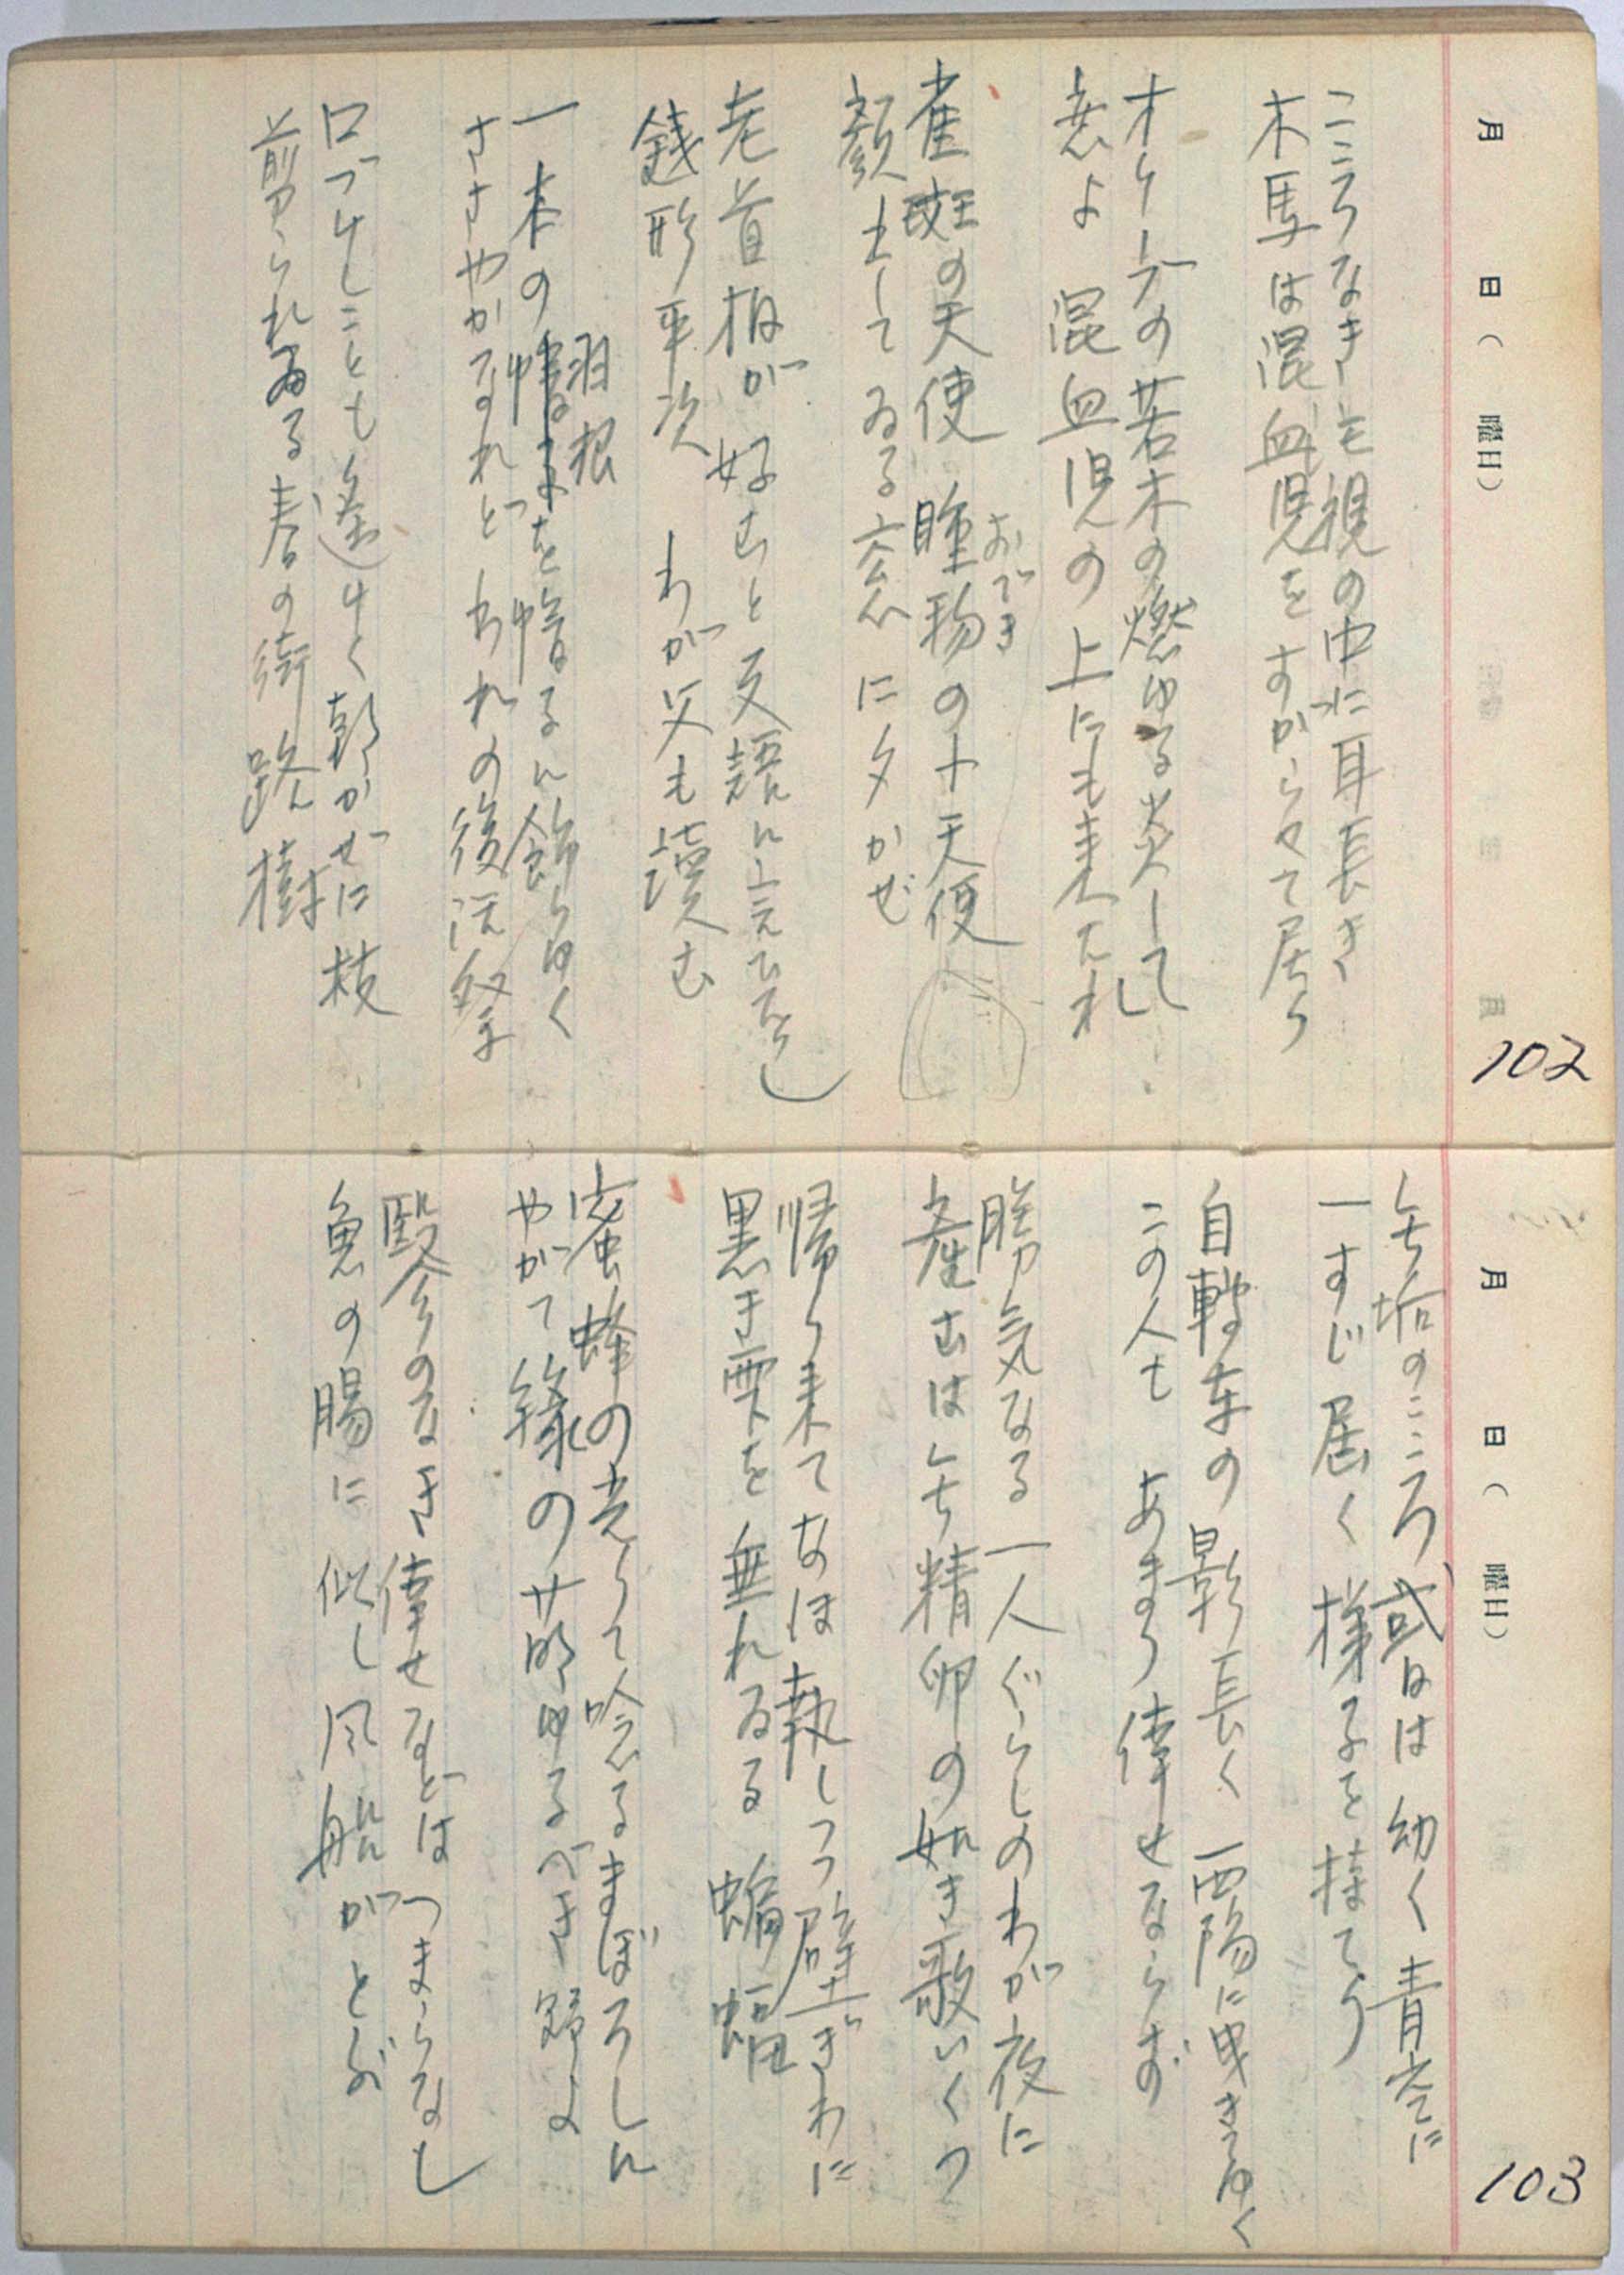 月　日（　曜日）
102
こころなき
木馬は混血児をすがらせて居り
オリーヴの若木の燃ゆる炎して
悲よ 混血児の上にも来たれ
雀斑の天使 腫物の十天使
おでき
顔出してゐる窓に夕かぜ
老首相が好むと友語に言ひたらし
銭形平次 わが父も讀む
羽根
一本の を惜るに飾りゆく
ささやかなれどわれの後活祭
口づけしことも遙けく朝かぜに枝
剪られゐる春の街路樹
月　日（　曜日）
103
無垢のこころ或は幼く青空に
一すじ届く梯子を持てり
自轉車の影長く西陽に曳きてゆく
この人もあまり倖せならず
勝気なる一人ぐらしのわが夜に
産むは無精卵の如き歌いくつ
帰り来てなほ執しつつ壁ぎわに
黒き雫を垂れゐる蝙蝠
蜜蜂の光りて唸るまぼろしに
やがて緑の萌ゆるべき野よ
翳りのなき倖せなどはつまらなし
魚の腸に似し風船がとぶ